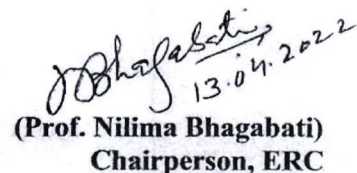 NBhagabati
13.04.2022
(Prof. Nilima Bhagabati)
Chairperson, ERC